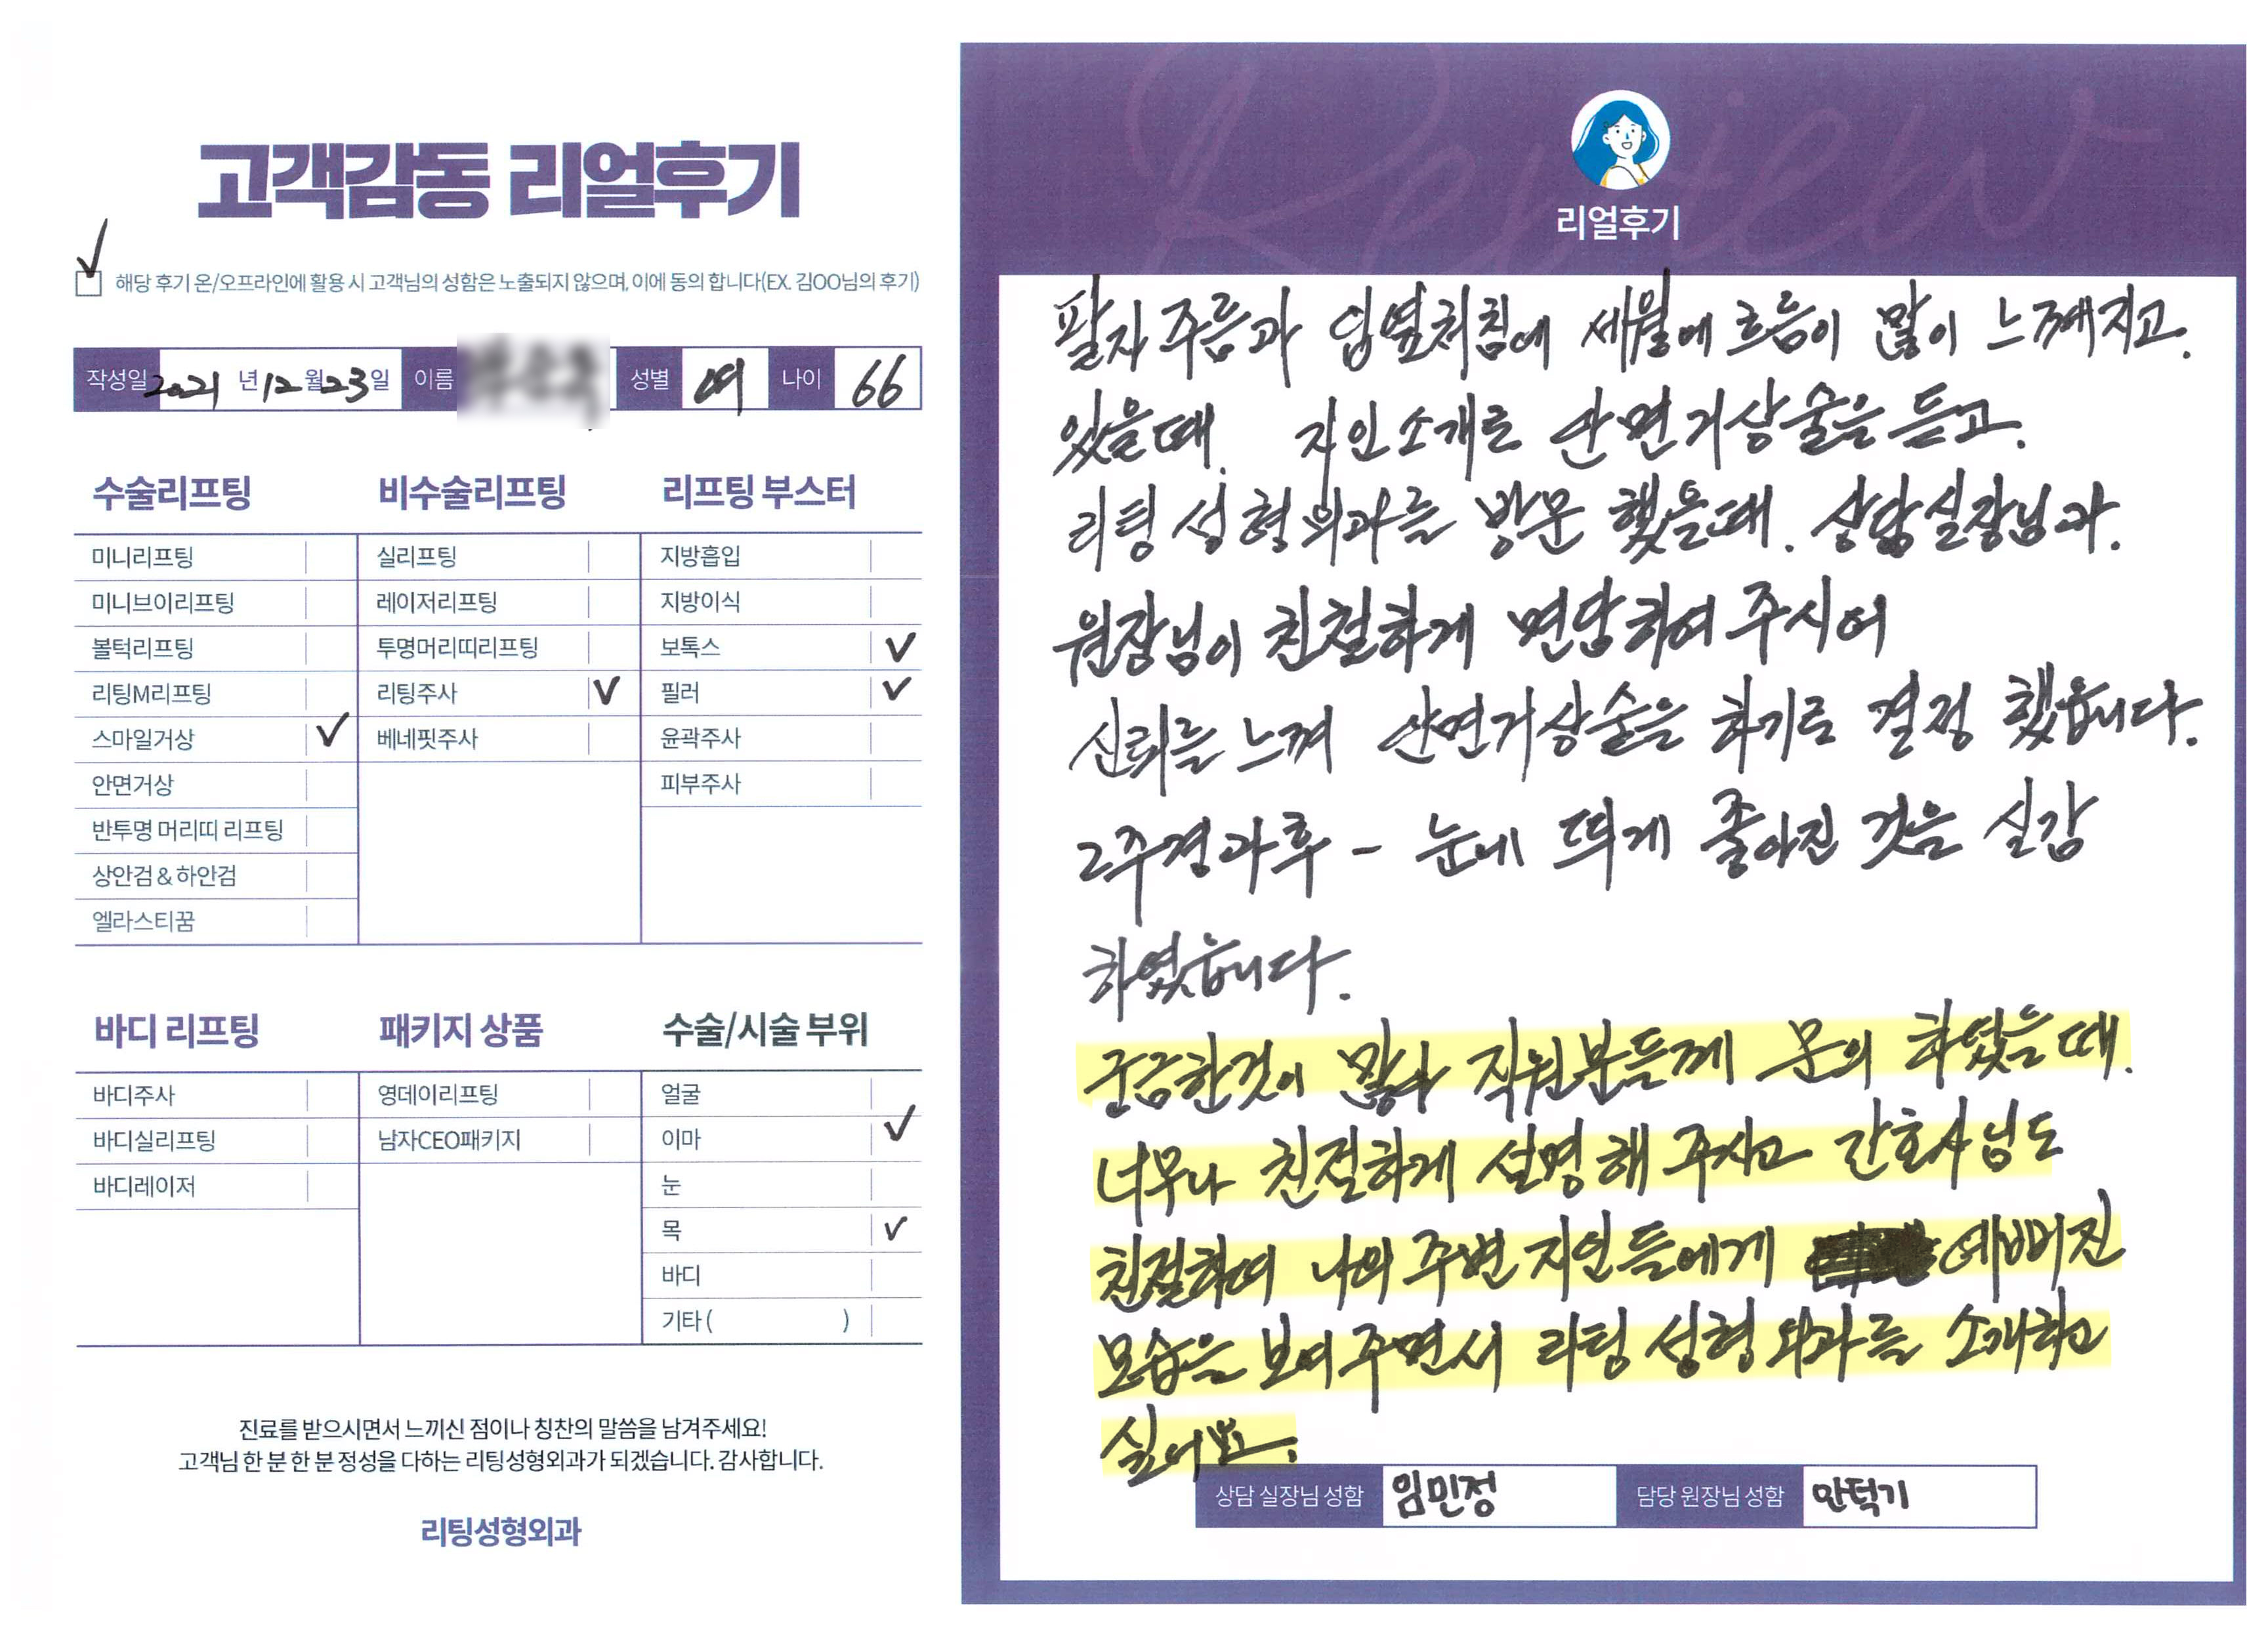 고객감동 리얼후기
해당 후기 온/오프라인에 활용 시 고객님의 성함은 노출되지 않으며, 이에 동의 합니다(EX. 김OO님의 후기)
작성일 2021 년 12 월 23 일 이름 성별 여 나이 66
수술리프팅
미니리프팅
미니브이리프팅
볼턱리프팅
리팅M리프팅
스마일거상 ✓
안면거상
반투명 머리띠 리프팅
상안검 & 하안검
엘라스티꿈
비수술리프팅
실리프팅
레이저리프팅
투명머리띠리프팅
리팅주사 ✓
베네핏주사
리프팅 부스터
지방흡입
지방이식
보톡스 ✓
필러 ✓
윤곽주사
피부주사
바디 리프팅
바디주사
바디실리프팅
바디레이저
패키지 상품
영데이리프팅
남자CEO패키지
수술/시술 부위
얼굴
이마 ✓
눈
목 ✓
바디
기타 ( )
진료를 받으시면서 느끼신 점이나 칭찬의 말씀을 남겨주세요!
고객님 한 분 한 분 정성을 다하는 리팅성형외과가 되겠습니다. 감사합니다.
리팅성형외과
Review
리얼후기
팔자주름과 입옆처짐에 세월에 흐름이 많이 느껴지고.
있을때. 지인소개로 안면거상술을 듣고.
리팅성형외과를 방문 했을때. 상담실장님과.
원장님이 친절하게 면담하여 주시어
신뢰를 느껴 안면거상술을 하기로 결정 했읍니다.
2주경과후 - 눈에 띄게 좋아진 것을 실감
하였읍니다.
궁금한것이 많아 직원분들께 문의 하였을때.
너무나 친절하게 설명해 주시고 간호사님도
친절하여 나의 주변 지인들에게 예뻐진
모습을 보여주면서 리팅성형외과를 소개하고
싶어요.
상담 실장님 성함 임민정 담당 원장님 성함 안덕기